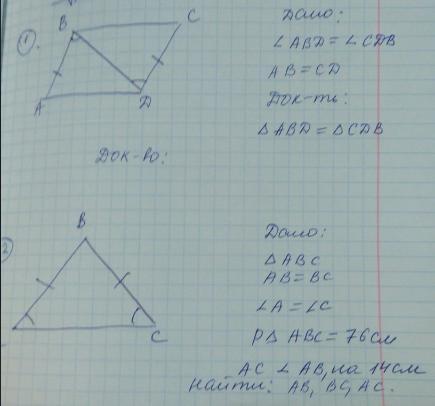 1.
B
C
A
D
Дано:
∠ABD = ∠CDB
AB = CD
Док-ть:
△ABD = △CDB
Док-во:
2
B
C
Дано:
△ABC
AB = BC
∠A = ∠C
P△ABC = 76 см
AC ∠ AB, на 14 см
Найти: AB, BC, AC.